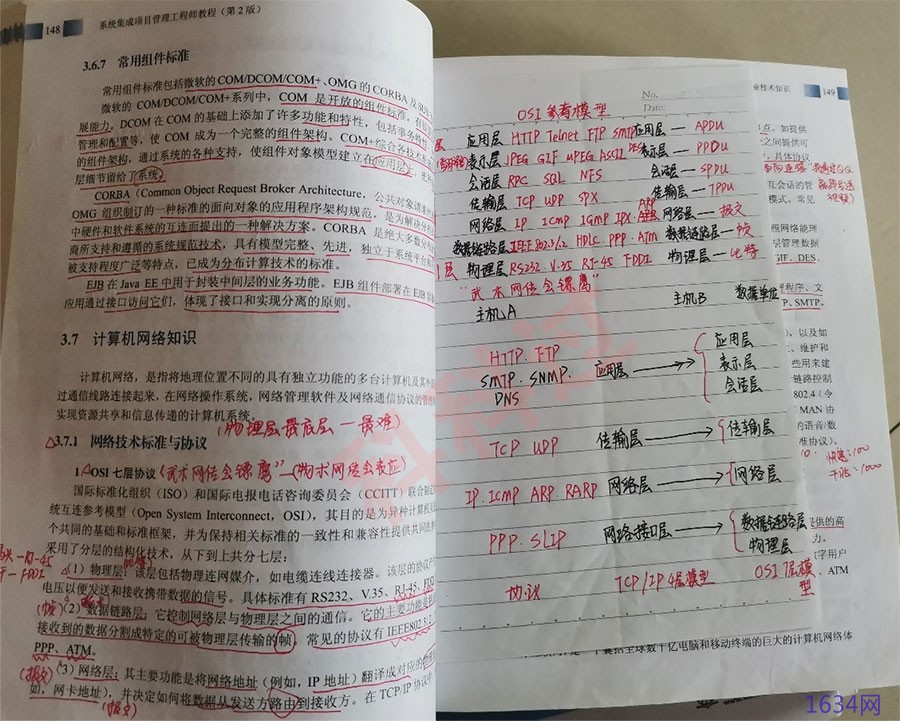 148
系统集成项目管理工程师教程（第2版）
3.6.7 常用组件标准
常用组件标准包括微软的COM/DCOM/COM+、OMG的CORBA及
微软的 COM/DCOM/COM+系列中，COM 是开放的组件标准，有
展能力。DCOM 在 COM 的基础上添加了许多功能和特性，包括事务特性
管理和配置等，使 COM 成为一个完整的组件架构。COM+综合各技术
的组件架构，通过系统的各种支持，使组件对象模型建立在应用层
层细节留给了系统。
CORBA（Common Object Request Broker Architecture，公共对象请求
OMG 组织制订的一种标准的面向对象的应用程序架构规范，是为解决分
中硬件和软件系统的互连而提出的一种解决方案。CORBA 是绝大多数分
商所支持和遵循的系统规范技术，具有模型完整、先进，独立于系统平台和
被支持程度广泛等特点，已成为分布计算技术的标准。
EJB 在 Java EE 中用于封装中间层的业务功能。EJB 组件部署在 EJB
应用通过接口访问它们，体现了接口和实现分离的原则。
3.7 计算机网络知识
计算机网络，是指将地理位置不同的具有独立功能的多台计算机及其外
过通信线路连接起来，在网络操作系统，网络管理软件及网络通信协议的管理
实现资源共享和信息传递的计算机系统。
(物理层最底层 — 最难)
△3.7.1 网络技术标准与协议
1. OSI 七层协议 《武术网传会镖鹰》—(物术网传会表应)
国际标准化组织（ISO）和国际电报电话咨询委员会（CCITT）联合制
统互连参考模型（Open System Interconnect，OSI），其目的是为异种计算机互
个共同的基础和标准框架，并为保持相关标准的一致性和兼容性提供共同的
采用了分层的结构化技术，从下到上共分七层：
△(1) 物理层：该层包括物理连网媒介，如电缆连线连接器。该层的协议产
电压以便发送和接收携带数据的信号。具体标准有RS232、V.35、RJ-45、FDDI
(帧) (2) 数据链路层：它控制网络层与物理层之间的通信。它的主要功能是
接收到的数据分割成特定的可被物理层传输的帧。常见的协议有IEEE802.3/2
PPP、ATM。
(报文) (3) 网络层：其主要功能是将网络地址（例如，IP 地址）翻译成对应的
如，网卡地址），并决定如何将数据从发送方路由到接收方。在 TCP/IP 协议中
(报文)
No.
Date:
OSI 参考模型
应用层 HTTP Telnet FTP SMTP 应用层 — APDU
表示层 JPEG GIF MPEG ASCII 表示层 — PPDU
会话层 RPC SQL NFS 会话层 — SPDU
传输层 TCP UDP SPX 传输层 — TPDU
网络层 IP ICMP IGMP IPX ARP 网络层 — 报文
数据链路层 IEEE802.3/2 HDLC PPP ATM 数据链路层 — 帧
物理层 RS232 V.35 RJ-45 FDDI 物理层 — 比特
“武术网传会镖鹰”
主机A 主机B 数据单位
HTTP. FTP
SMTP. SNMP.
DNS
应用层 → 应用层
表示层
会话层
TCP UDP 传输层 → 传输层
IP. ICMP ARP. RARP 网络层 → 网络层
PPP. SLIP 网络接口层 → 数据链路层
物理层
协议 TCP/IP 4层模型 OSI 7层模型
业技术知识
149
如提供
之间提供可
具体协议
互会话的管
模式。常见
网络能理
层管理数据
GIF、DES、
程序、文
P、SMTP、
），以及如
、维护和
些用来建
链路控制
802.4（令
MAN 协
的语音/数
准协议）。
快速:100
千兆:1000
提供的高
力。
字用户
、ATM
个囊括全球数十亿电脑和移动终端的巨大的计算机网络体
科科过
1634网